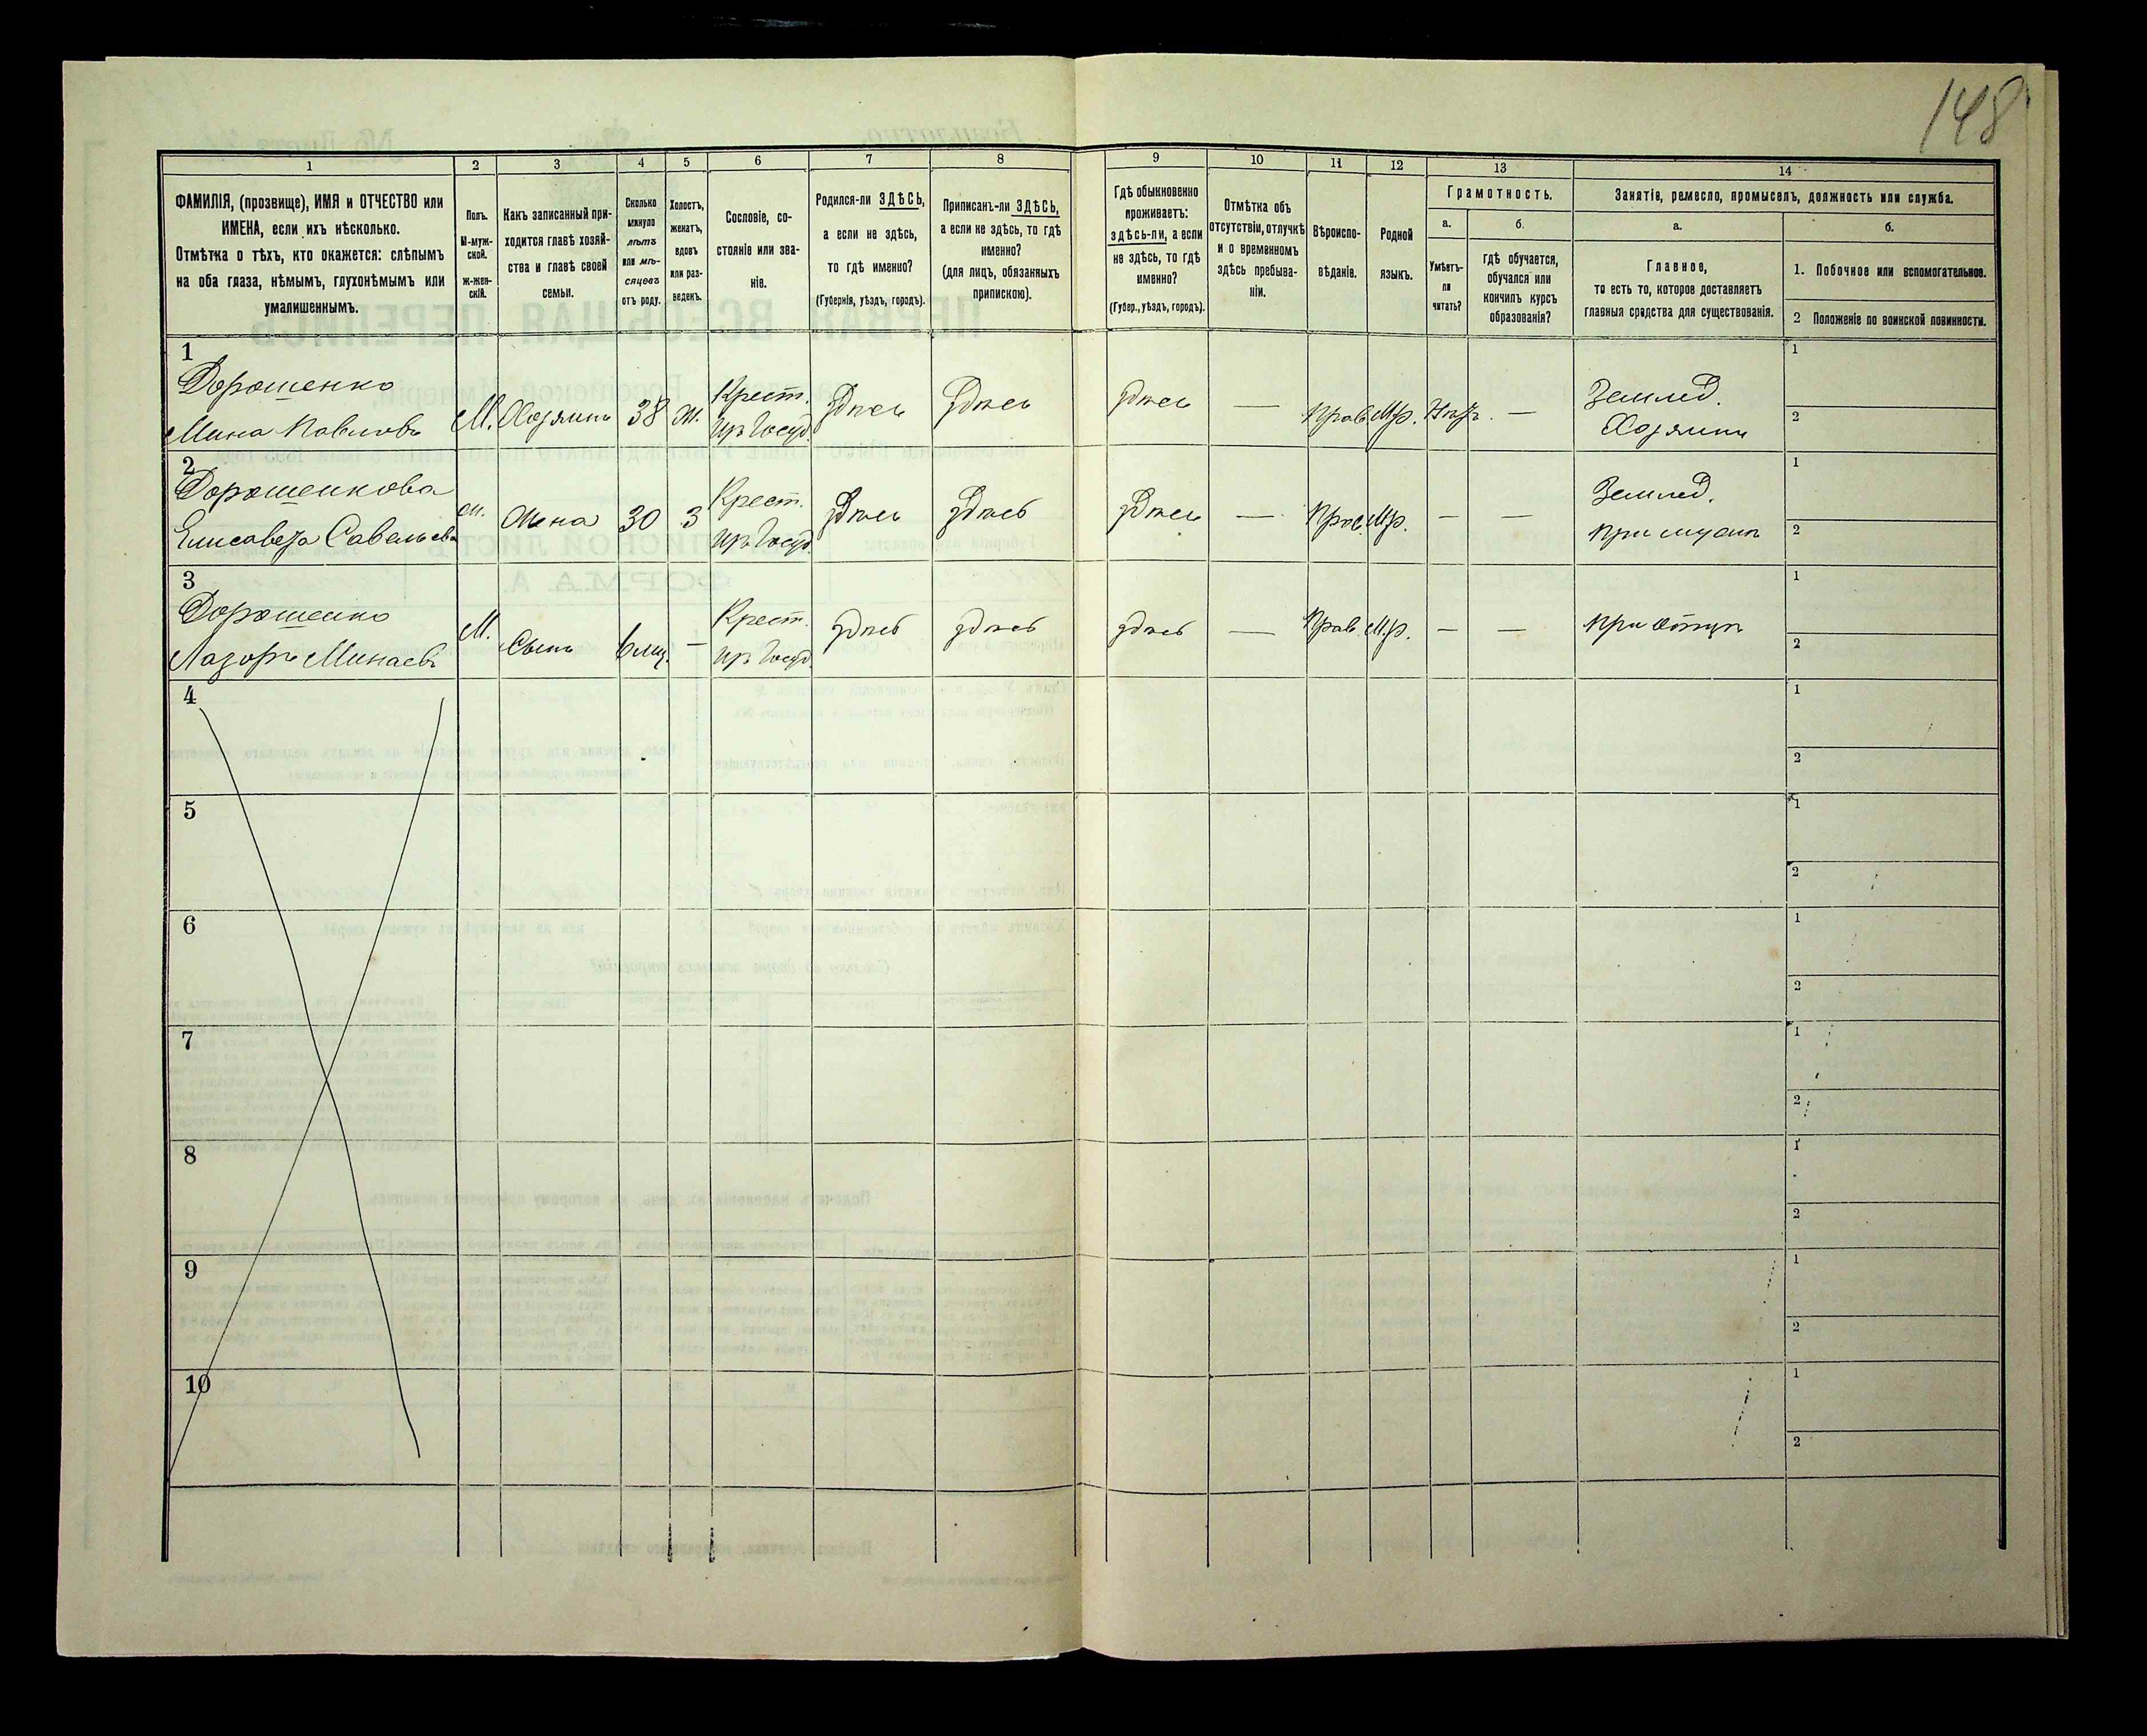 148
1
2
3
4
5
6
7
8
9
10
11
12
13
14
ФАМИЛІЯ, (прозвище), ИМЯ и ОТЧЕСТВО или
ИМЕНА, если ихъ нѣсколько.
Отмѣтка о тѣхъ, кто окажется: слѣпымъ
на оба глаза, нѣмымъ, глухонѣмымъ или
умалишеннымъ.
Полъ.
М-муж-
ской.
ж-жен-
скій.
Какъ записанный при-
ходится главѣ хозяй-
ства и главѣ своей
семьи.
Сколько
минуло
лѣтъ
или мѣ-
сяцевъ
отъ роду.
Холостъ,
женатъ,
вдовъ
или раз-
веденъ.
Сословіе, со-
стояніе или зва-
ніе.
Родился-ли ЗДѢСЬ,
а если не здѣсь,
то гдѣ именно?
(Губернія, уѣздъ, городъ).
Приписанъ-ли ЗДѢСЬ,
а если не здѣсь, то гдѣ
именно?
(для лицъ, обязанныхъ
припискою).
Гдѣ обыкновенно
проживаетъ:
здѣсь-ли, а если
не здѣсь, то гдѣ
именно?
(Губер., уѣздъ, городъ).
Отмѣтка объ
отсутствіи, отлучкѣ
и о временномъ
здѣсь пребыва-
ніи.
Вѣроиспо-
вѣданіе.
Родной
языкъ.
Грамотность.
а.
Умѣетъ-
ли
читать?
б.
гдѣ обучается,
обучался или
кончилъ курсъ
образованія?
Занятіе, ремесло, промыселъ, должность или служба.
а.
Главное,
то есть то, которое доставляетъ
главныя средства для существованія.
б.
1. Побочное или вспомогательное.
2 Положеніе по воинской повинности.
1
Дорошенко
Мина Павловъ
М.
Хозяинъ
38
Ж.
Крест.
изъ Госуд.
Здѣсь
Здѣсь
здѣсь
—
Прав.
Мр.
—
Землед.
Хозяинъ
1
2
2
Дорошенкова
Елисавета Савельева
Жена
30
З
Крест.
изъ Госуд.
Здѣсь
Здѣсь
Здѣсь
—
Прав.
Мр.
—
—
Землед.
при мужѣ
1
2
3
Дорошенко
Лазорь Минаевъ
М.
Сынъ
6 мц.
—
Крест.
изъ Госуд.
здѣсь
здѣсь
здѣсь
—
Прав.
Мр.
—
—
при отцѣ
1
2
4
1
2
5
1
2
6
1
2
7
1
2
8
1
2
9
1
2
10
1
2